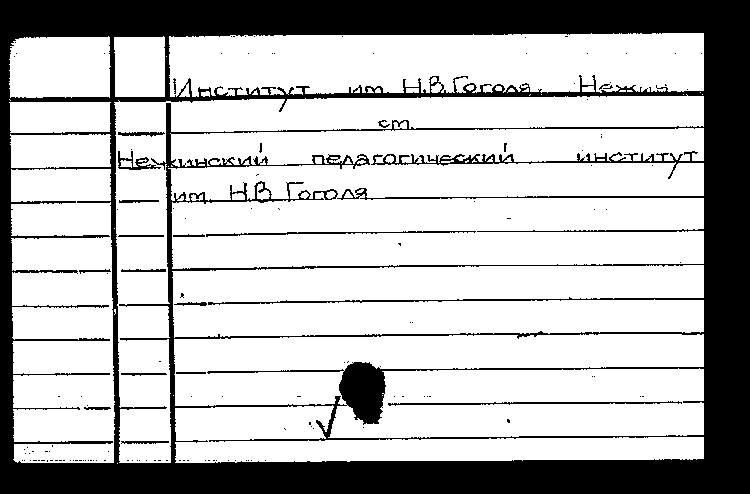 Институт им. Н.В.Гоголя. Нежин
см.
Нежинский педагогический институт
им. Н.В. Гоголя